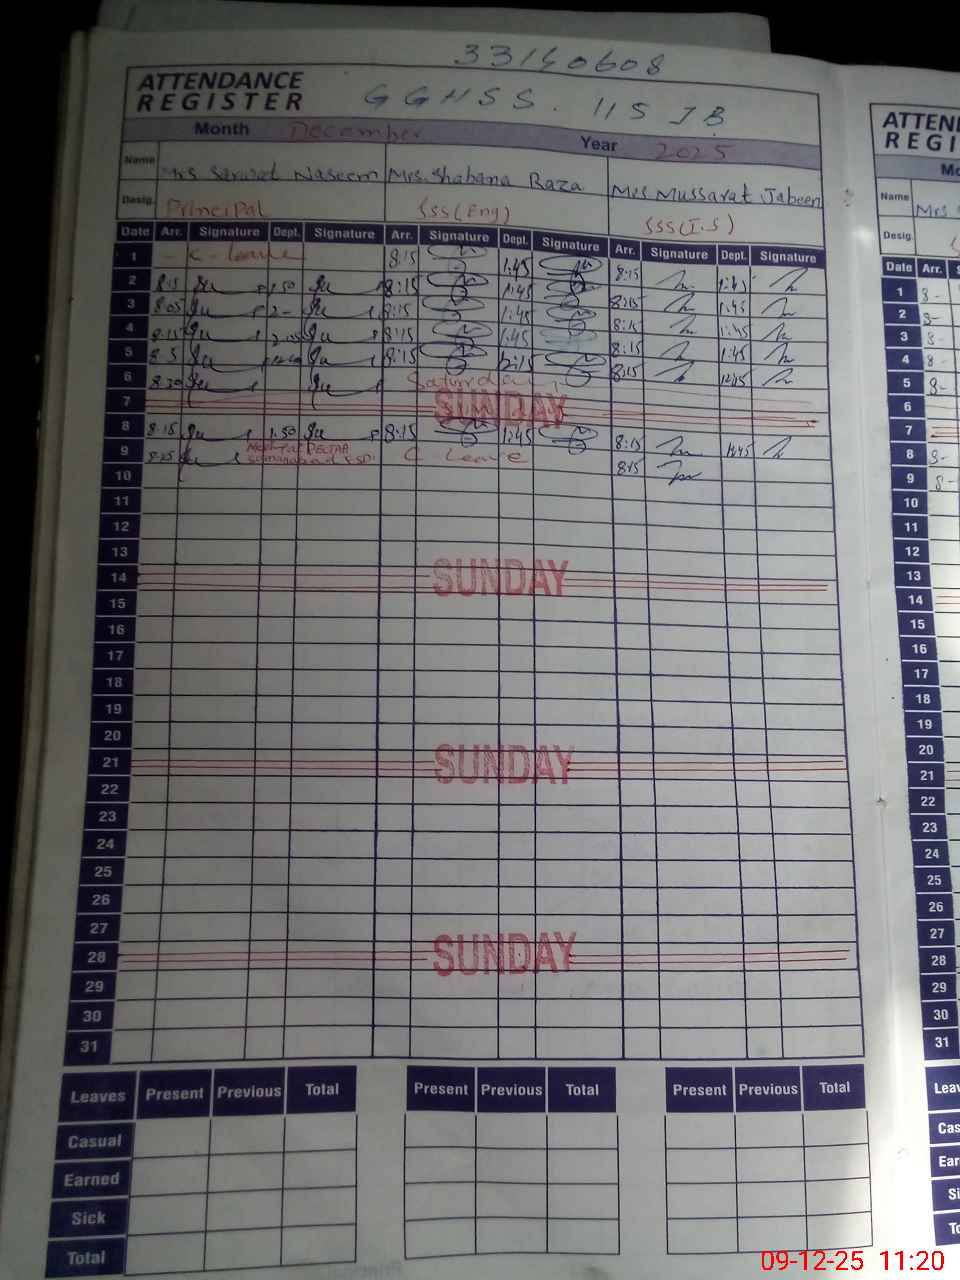 33140608
ATTENDANCE
REGISTER
GGHSS. 115 JB
Month December Year 2025
Name Mrs Sarwat Naseem Mrs. Shabana Raza Mrs Mussarat Jabeen
Desig. Principal SSS(Eng) SSS(I.S)
Date Arr. Signature Dept. Signature Arr. Signature Dept. Signature Arr. Signature Dept. Signature
1 - C-leave 8:15 1:45 8:15 1:45
2 8:15 1.50 8:15 1:45 8:15 1:45
3 8:05 2- 8:15 1:45 8:15 1:45
4 8:15 8:15 1:45 8:15 1:45
5 8:15 12:15 8:15 12:15
6 8:30 Saturday
7 SUNDAY
8 8:15 1.50 8:15 1:45 8:15 1:45
9 8:15 C Leave 8:15
10
11
12
13
14 SUNDAY
15
16
17
18
19
20
21 SUNDAY
22
23
24
25
26
27
28 SUNDAY
29
30
31
Leaves Present Previous Total Present Previous Total Present Previous Total
Casual
Earned
Sick
Total
ATTEN
REGI
Mo
Name Mrs
Desig.
Date Arr.
1 8-
2 8-
3 8-
4 8-
5 8-
6
7
8 8-
9 8-
10
11
12
13
14
15
16
17
18
19
20
21
22
23
24
25
26
27
28
29
30
31
Leav
Cas
Ear
Si
To
09-12-25 11:20